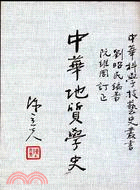 中華科學技藝史叢書
劉昭民編著
阮維周訂正
中華地質學史